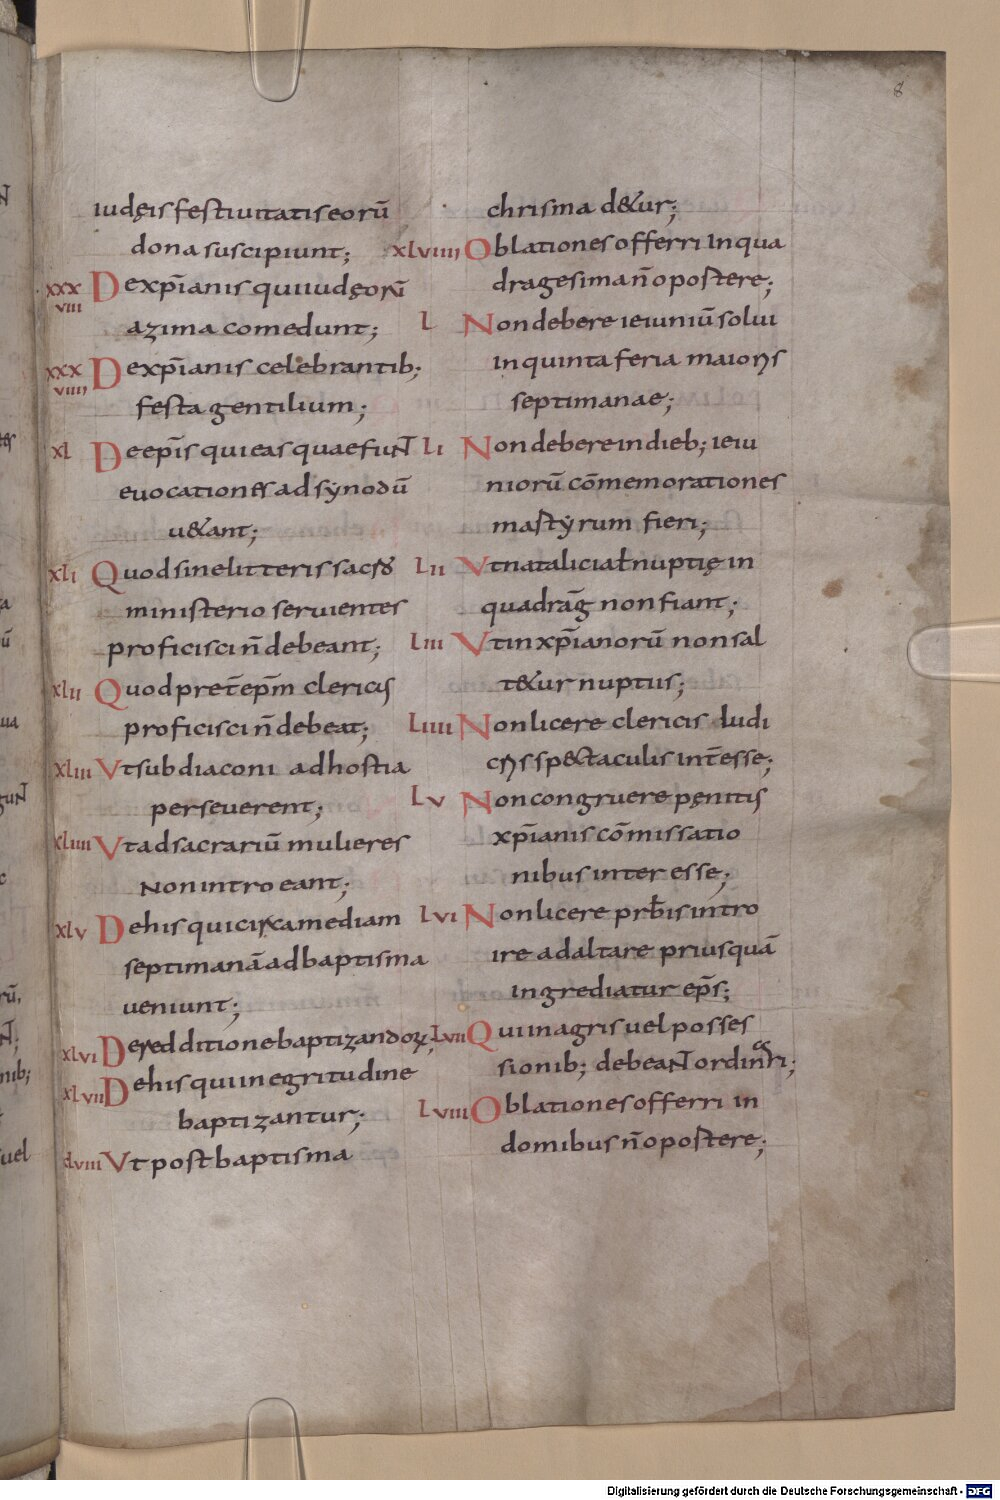 8
iudęis festiuitatis eorū
dona suscipiunt;
XXXVIII De xp̄ianis qui iudęorū
azima comedunt;
XXXVIIII De xp̄ianis celebrantib;
festa gentilium;
XL De ep̄is qui eas quae fiunt
euocationes ad synodū
u&ant;
XLI Quod sine litteris sacrō
ministerio seruientes
proficisci n̄ debeant;
XLII Quod pret̄ ep̄m clericis
proficisci n̄ debeat;
XLIII Vt subdiaconi ad hostia
perseuerent;
XLIIII Vt ad sacrariū mulieres
non introeant;
XLV De his qui circa mediam
septimanā ad baptisma
ueniunt;
XLVI De redditione baptizandorꝝ;
XLVII De his qui in egritudine
baptizantur;
XLVIII Vt post baptisma
chrisma d&ur;
XLVIIII Oblationes offerri In qua
dragesima n̄ oportere;
L Non debere ieiuniū solui
in quinta feria maioris
septimanae;
LI Non debere in dieb; ieiu
niorū cōmemorationes
martyrum fieri;
LII Vt natalicia ł nuptię in
quadrāg non fiant;
LIII Vt in xp̄ianorū non sal
t&ur nuptiis;
LIIII Non licere clericis ludi
cris sp&taculis int̄esse;
LV Non congruere pęnitis
xp̄ianis cōmissatio
nibus inter esse;
LVI Non licere prb̄is intro
ire ad altare priusquā
ingrediatur ep̄s;
LVII Qui in agris uel posses
sionib; debeant ordinari;
LVIII Oblationes offerri in
domibus n̄ oportere;
Digitalisierung gefördert durch die Deutsche Forschungsgemeinschaft - DFG